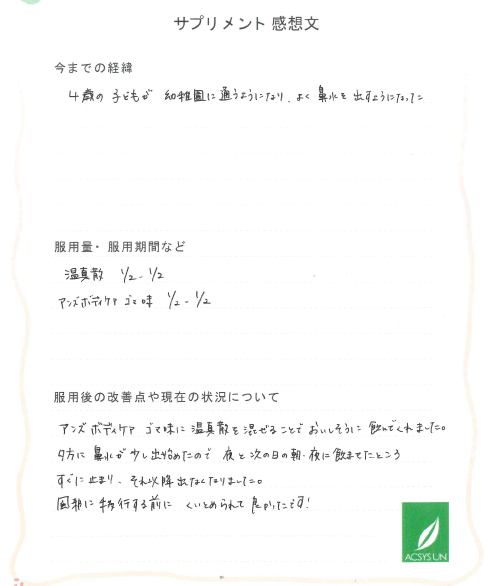 サプリメント 感想文
今までの経緯
4歳の 子どもが 幼稚園に通うようになり、よく 鼻水を 出すようになった
服用量・服用期間など
温真散 1/2 - 1/2
アンズボディケア ゴマ味 1/2 - 1/2
服用後の改善点や現在の状況について
アンズボディケア ゴマ味に 温真散を混ぜることで おいしそうに 飲んでくれました。
夕方に 鼻水が少し出始めたので 夜と次の日の朝・夜に飲ませたところ
すぐに止まり、それ以降出なくなりました。
風邪に移行する前に くいとめられて 良かったです!
ACSYSUN